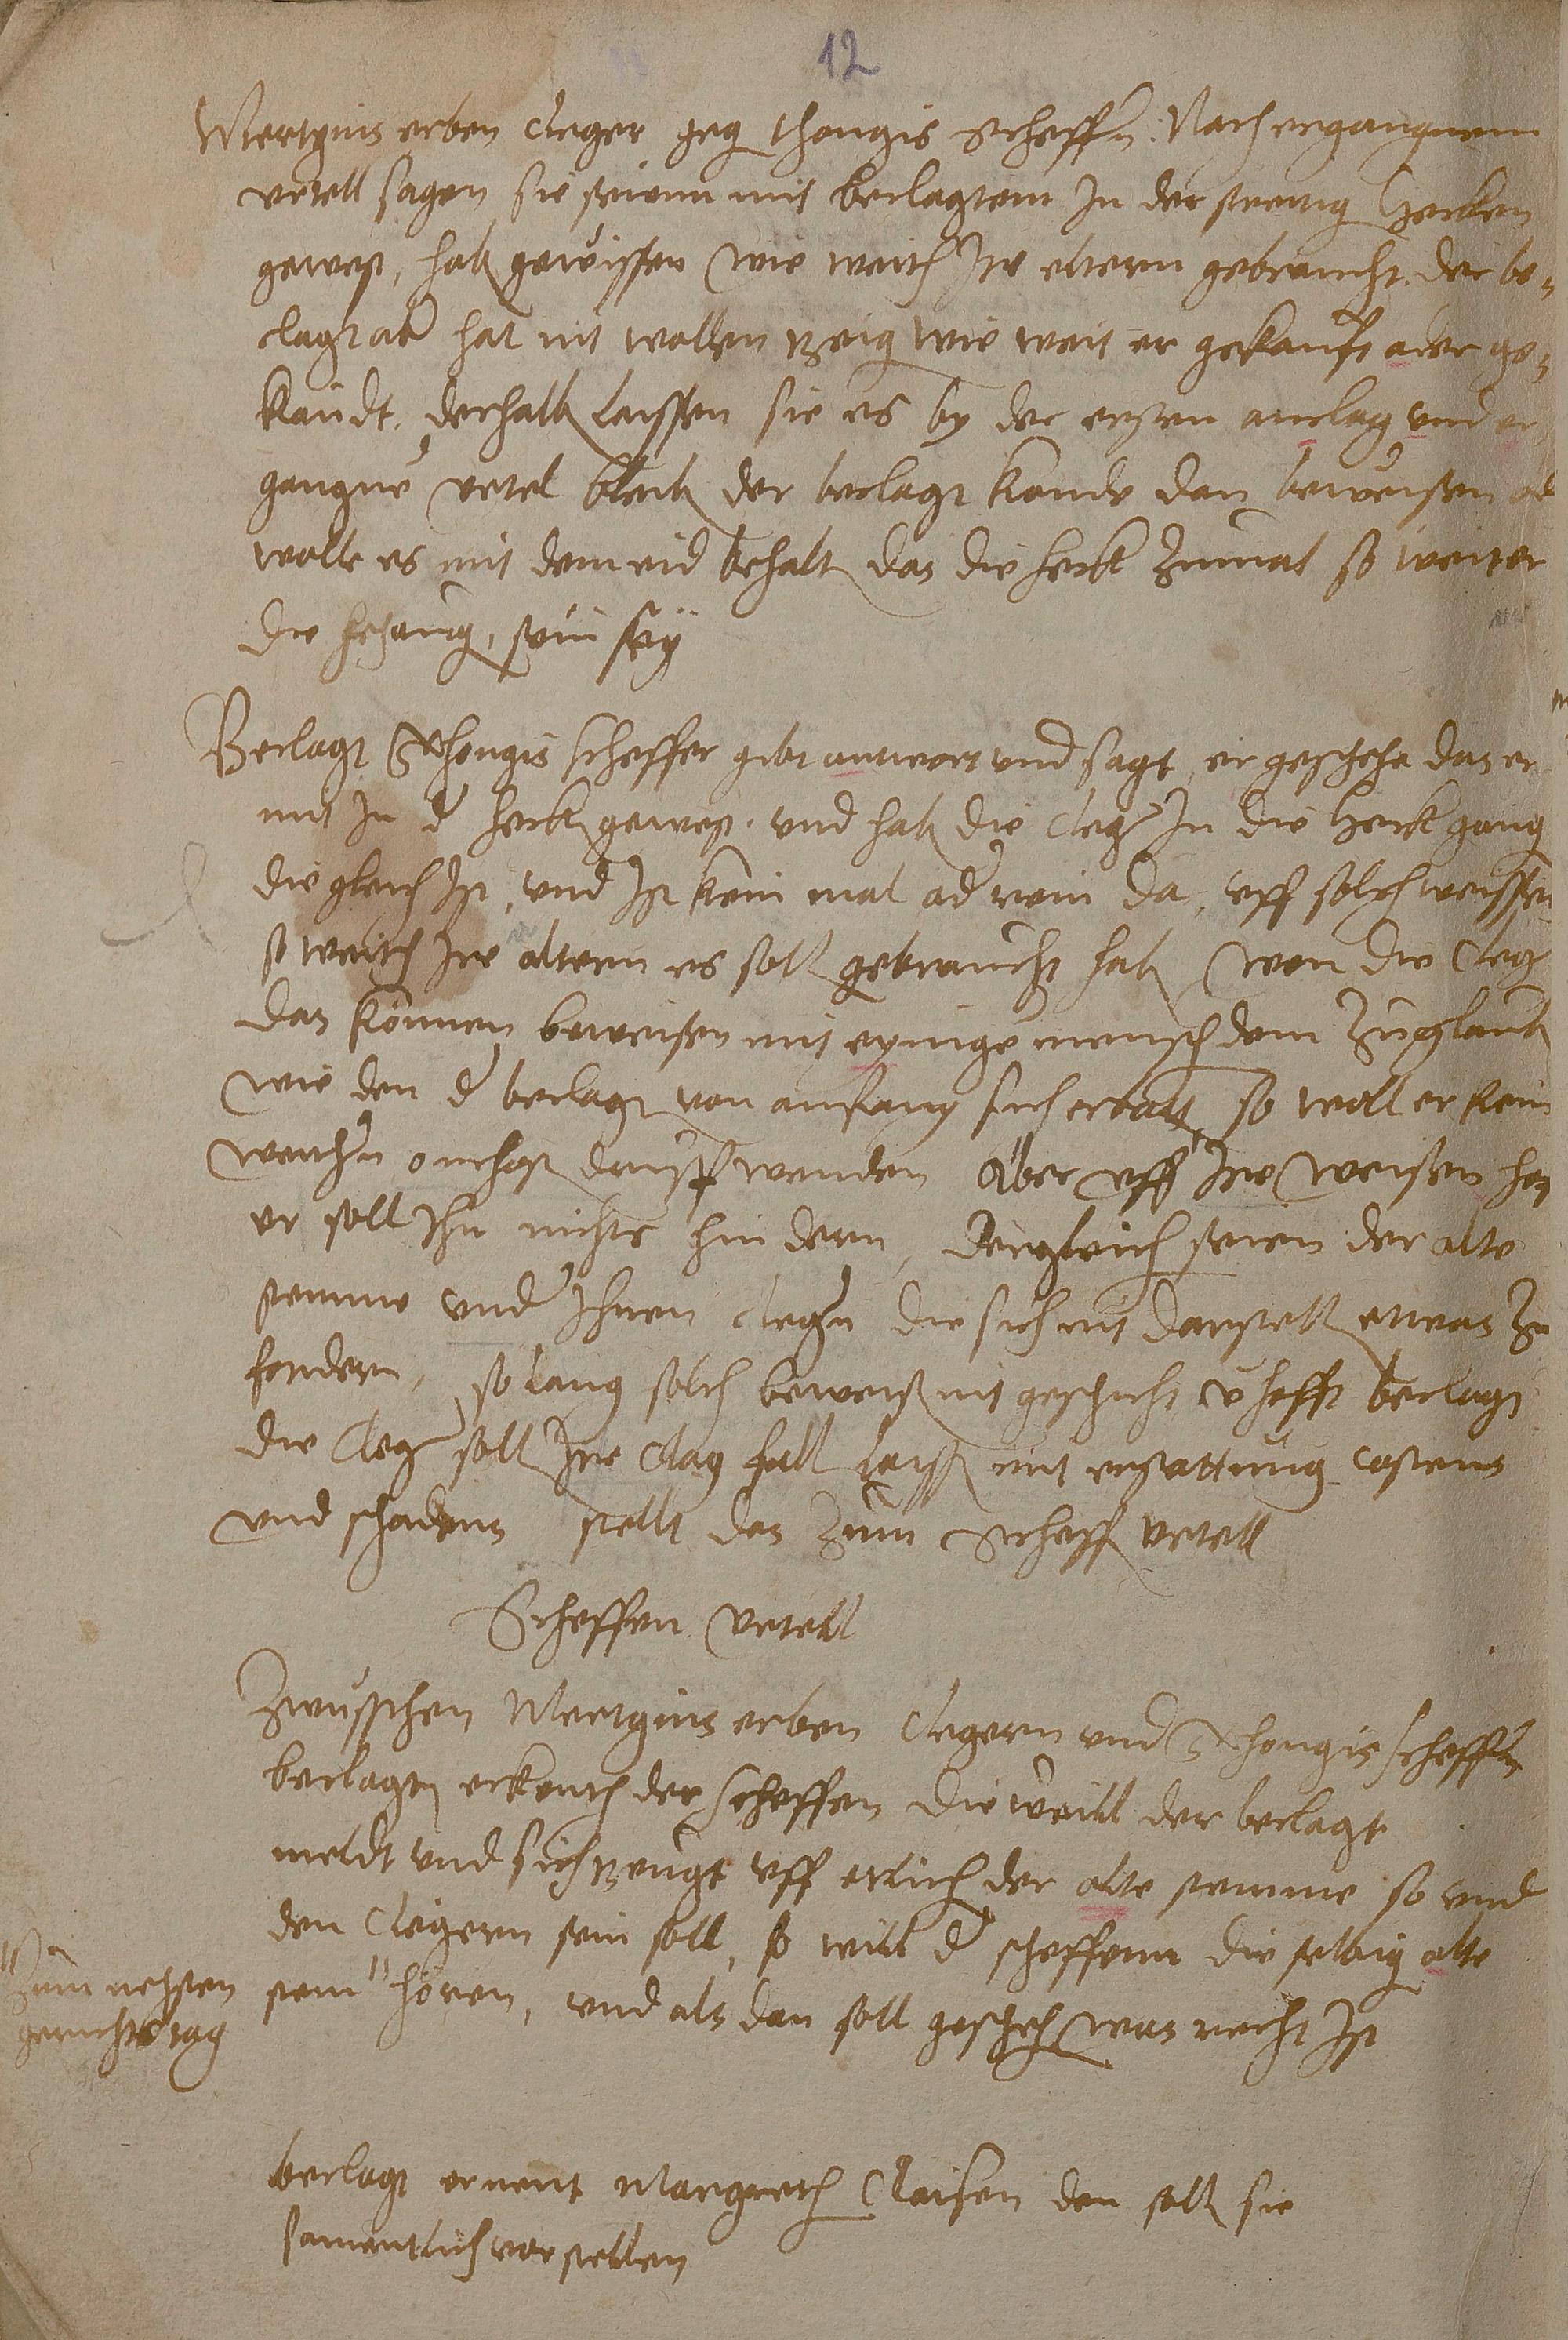 12
Mertgins erben cleger geg thongis Scheffn. Nach ergangnem
urtell sagen sie seienn mit beclagtem In der streitig Hecken
gewest, hab gewissen wie weith Ire eltern gebraucht. der be-
clagt ab hat nit wollen zeig wie weit er gekauft oder ge-
kaudt. derhalb laissen sie es by der ersten anclag und er
gangne urtel bleib der beclagt konde dan beweissen od
wolle es mit dem eid behalt das die heck zumal so weit er
die , sein sey
Beclagt Thongis scheffer gibt antwort und sagt, er gestehe das er
mit In d heck gewest. und hab die cleg In die Heck gang
die gleich Ist, und Ist kein mal ad rein da, uff solch weissen
so weith Ire altern es soll gebraucht hab wen die cleg
das können beweissen mit eynige mensch dem zuglaub
wie den d beclagt von anfang sich erbatt, so woll er kein
weithn onchost daruff wenden Aber uff Ire weissen
er soll Ihn nichts hindern, Dergleich seien der alte
stemme und Ihnen clegn die sich nit darstell etwas zu
fordern, so lang solch beweiss nit geschicht v hofft beclagt
die cleg soll Ire clag fall laiss mit erstattung costens
und schadens stellt das zum Scheff urtell
Scheffen Urtell
Zwusschen Mertgins erben clegern und Thongis scheffern
beclagten erkenth der scheffen die weill der beclagt
meldt und sich zeugt uff etlich der alte stemme so und
den clegern sein soll, so will d scheffenn die selbig alte
stem " hören, und als dan soll gescheh was recht Ist
" Zum nehsten
gerichtstag
beclagt ernent Margreth Claisen den soll sie
samentlich vorstellen